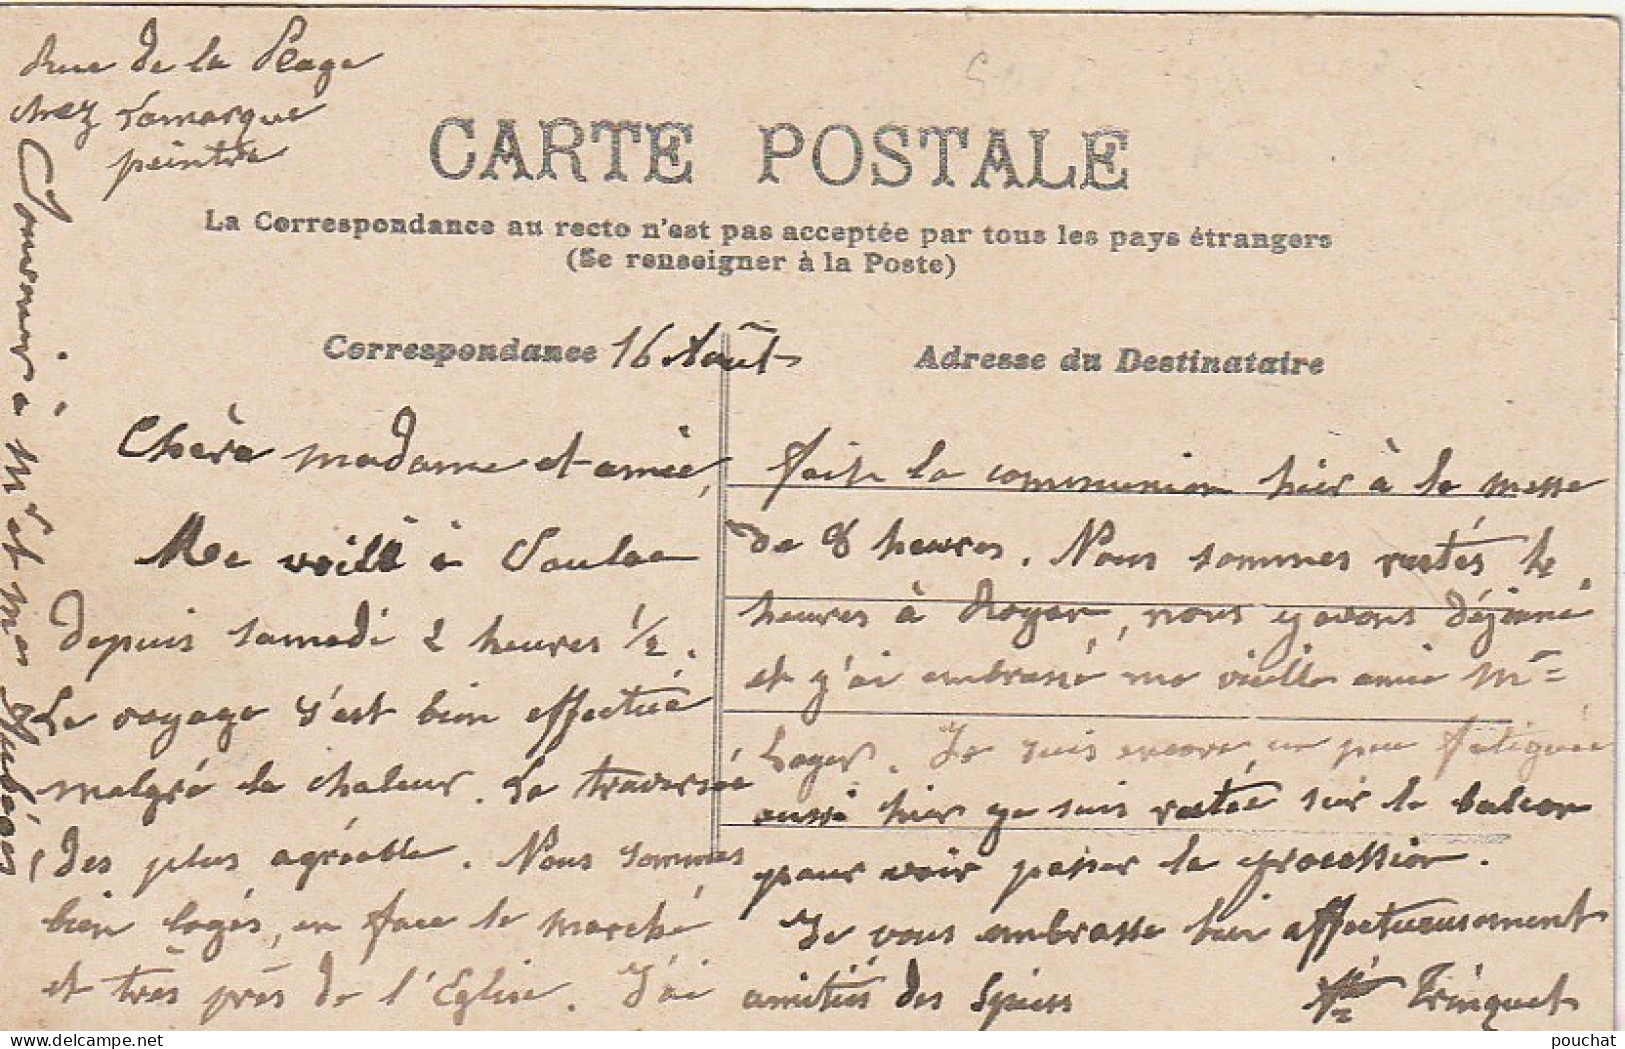 Rue de la Plage
chez Lamarque
peintre
CARTE POSTALE
La Correspondance au recto n'est pas acceptée par tous les pays étrangers
(Se renseigner à la Poste)
Correspondance 16 Août
Adresse du Destinataire
Chère madame et amie,
Me voilà à Soulac
depuis samedi 2 heures 1/2.
Le voyage s'est bien effectué
malgré la chaleur. La traversée
des plus agréable. Nous sommes
bien logés, en face le marché
et très près de l'Eglise. J'ai
fait la communion hier à la messe
de 8 heures. Nous sommes restés
heures à Royan, nous y avons déjeuné
et j'ai embrassé ma vieille amie Mme
Je suis encore un peu fatiguée
aussi hier je suis restée sur le balcon
pour voir passer la procession.
Je vous embrasse bien affectueusement
amitiés des
Trinquet
Souvenir à Mr et Mes
pouchat